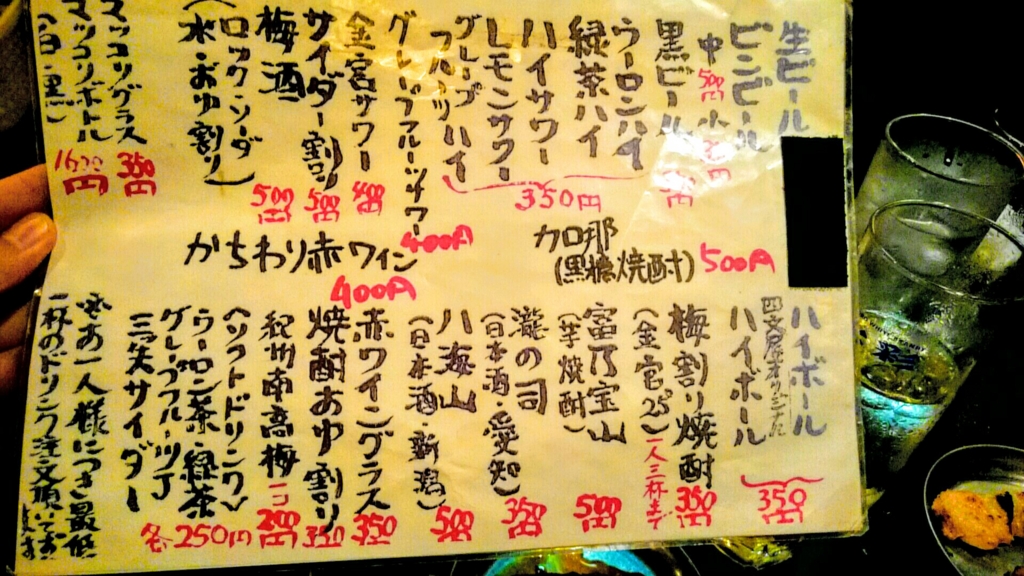 生ビール
ビンビール
中500円 小
黒ビール
ウーロンハイ
緑茶ハイ
ハイサワー
レモンサワー
グレープハイ
フルーツ
350円
グレープフルーツサワー
400円
金宮サワー
400円
サイダー割り
500円
梅酒
500円
(ロック・ソーダ
水・おゆ割り)
マッコリグラス
350円
マッコリボトル
(白・黒)
1600円
カロ那
(黒糖焼酎)500円
かちわり赤ワイン
400円
ハイボール
四文屋オリジナル
ハイボール
350円
梅割り焼酎
350円
(金宮25°)一人三杯まで
富乃宝山
(芋焼酎)
500円
瀧の司
(日本酒・愛知)
350円
八海山
(日本酒・新潟)
500円
赤ワイングラス
350円
焼酎おゆ割り
350円
紀州南高梅 一コ
200円
〈ソフトドリンク〉
ウーロン茶・緑茶
グレープフルーツJ
三ツ矢サイダー
各250円
※お一人様につき最低
一杯のドリンク注文頂いております